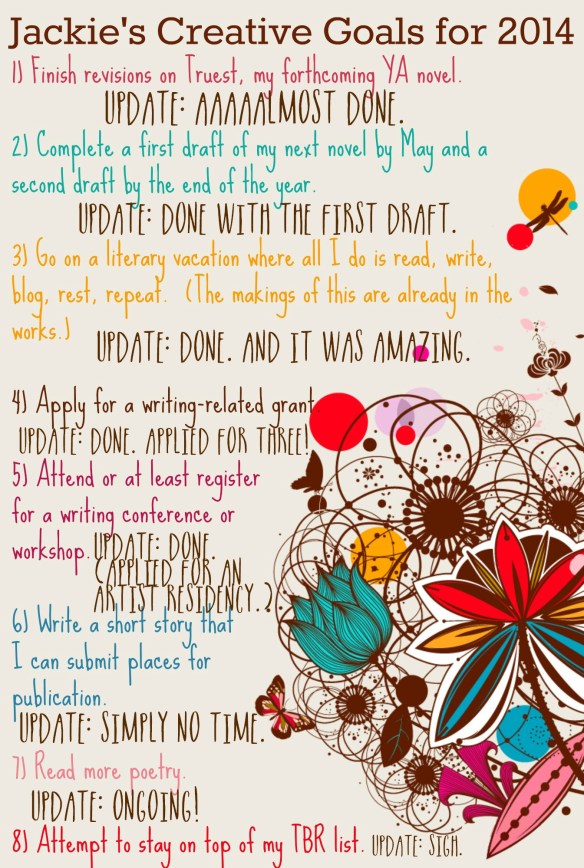 Jackie's Creative Goals for 2014
1) Finish revisions on Truest, my forthcoming YA novel.
UPDATE: AAAAALMOST DONE.
2) Complete a first draft of my next novel by May and a
second draft by the end of the year.
UPDATE: DONE WITH THE FIRST DRAFT.
3) Go on a literary vacation where all I do is read, write,
blog, rest, repeat. (The makings of this are already in the
works.)
UPDATE: DONE. AND IT WAS AMAZING.
4) Apply for a writing-related grant.
UPDATE: DONE. APPLIED FOR THREE!
5) Attend or at least register
for a writing conference or
workshop.
UPDATE: DONE.
(APPLIED FOR AN
ARTIST RESIDENCY.)
6) Write a short story that
I can submit places for
publication.
UPDATE: SIMPLY NO TIME.
7) Read more poetry.
UPDATE: ONGOING!
8) Attempt to stay on top of my TBR list. UPDATE: SIGH.